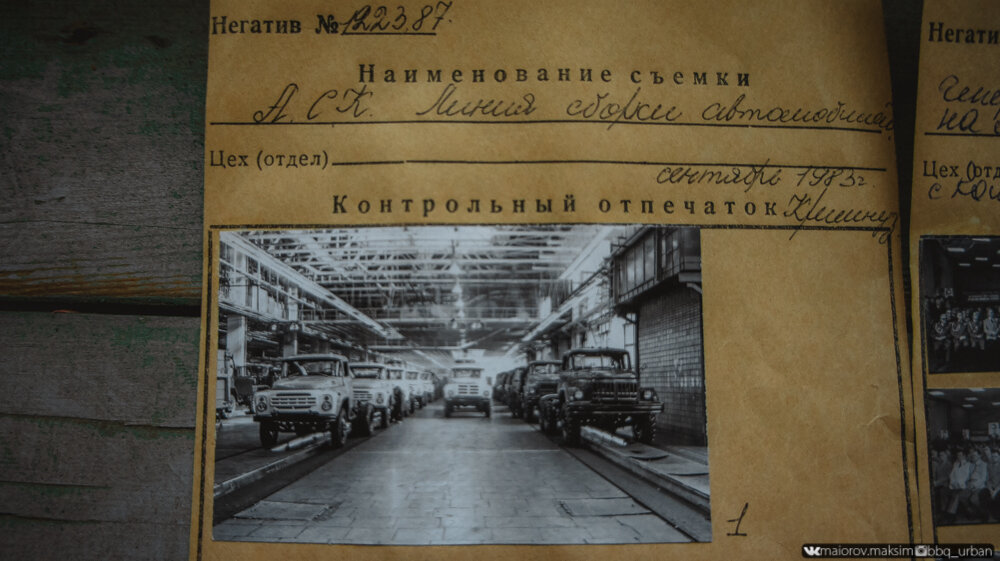 Негатив № 1223.87.
Наименование съемки
А.С.К. Линия сборки автомобилей.
Цех (отдел)
сентябрь 1983г.
Контрольный отпечаток
1
Негати
на
Цех (отд
с
maiorov.maksim bbq_urban